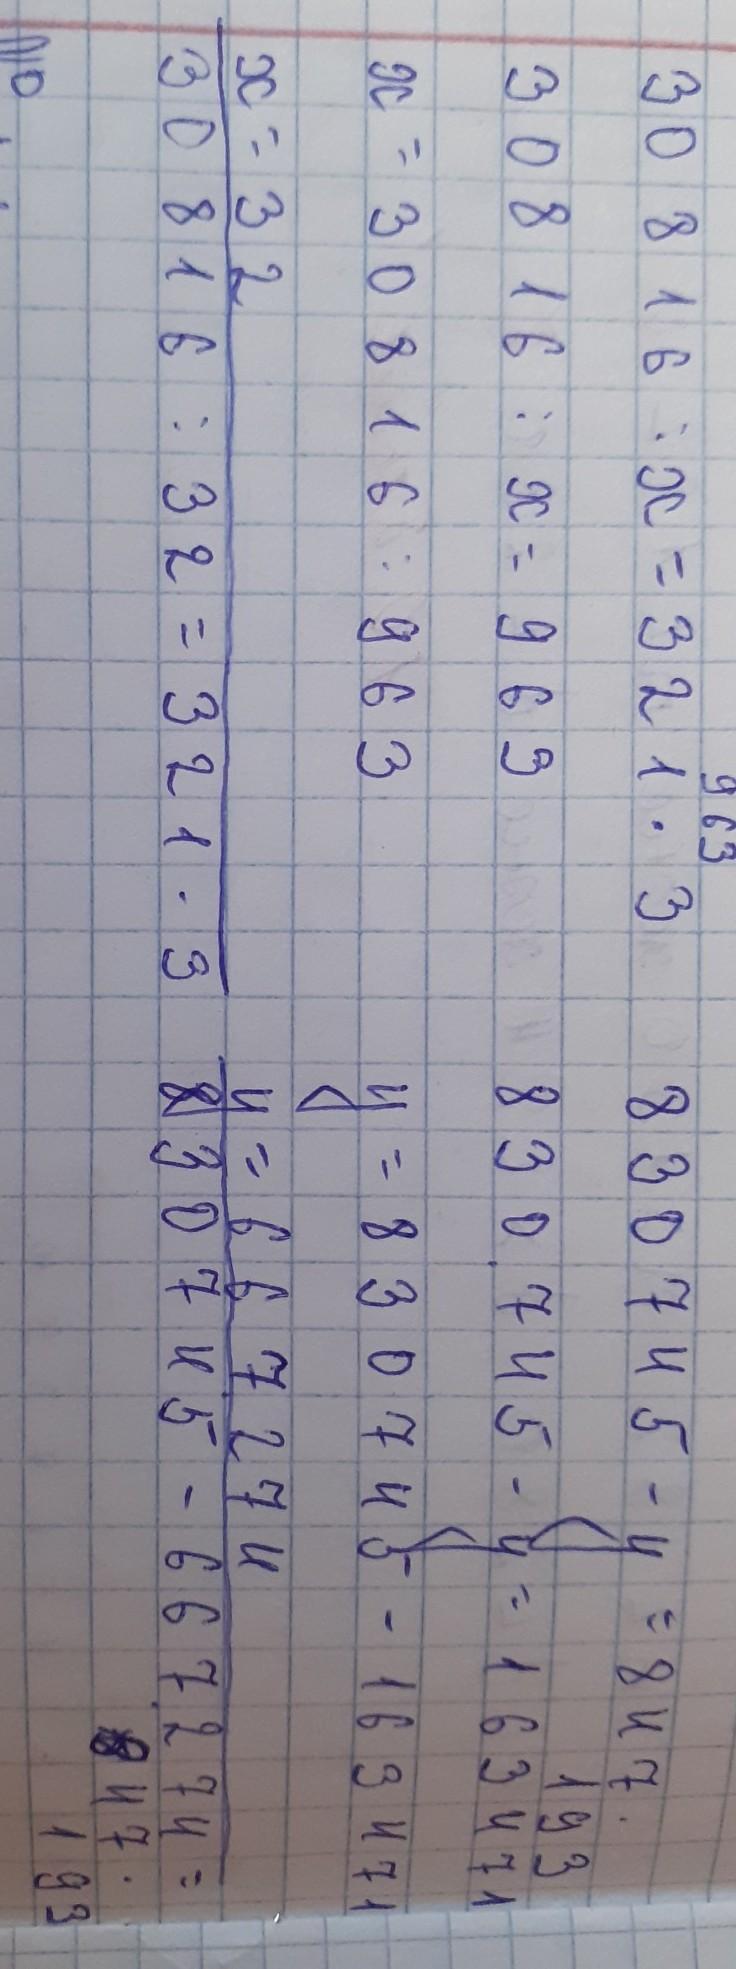 963
30816 : x = 321 · 3
30816 : x = 963
x = 30816 : 963
x = 32
30816 : 32 = 321 · 3
830745 - y = 847 ·
193
830745 - y = 163471
y = 830745 - 163471
y = 667274
830745 - 667274 =
847 ·
193
№